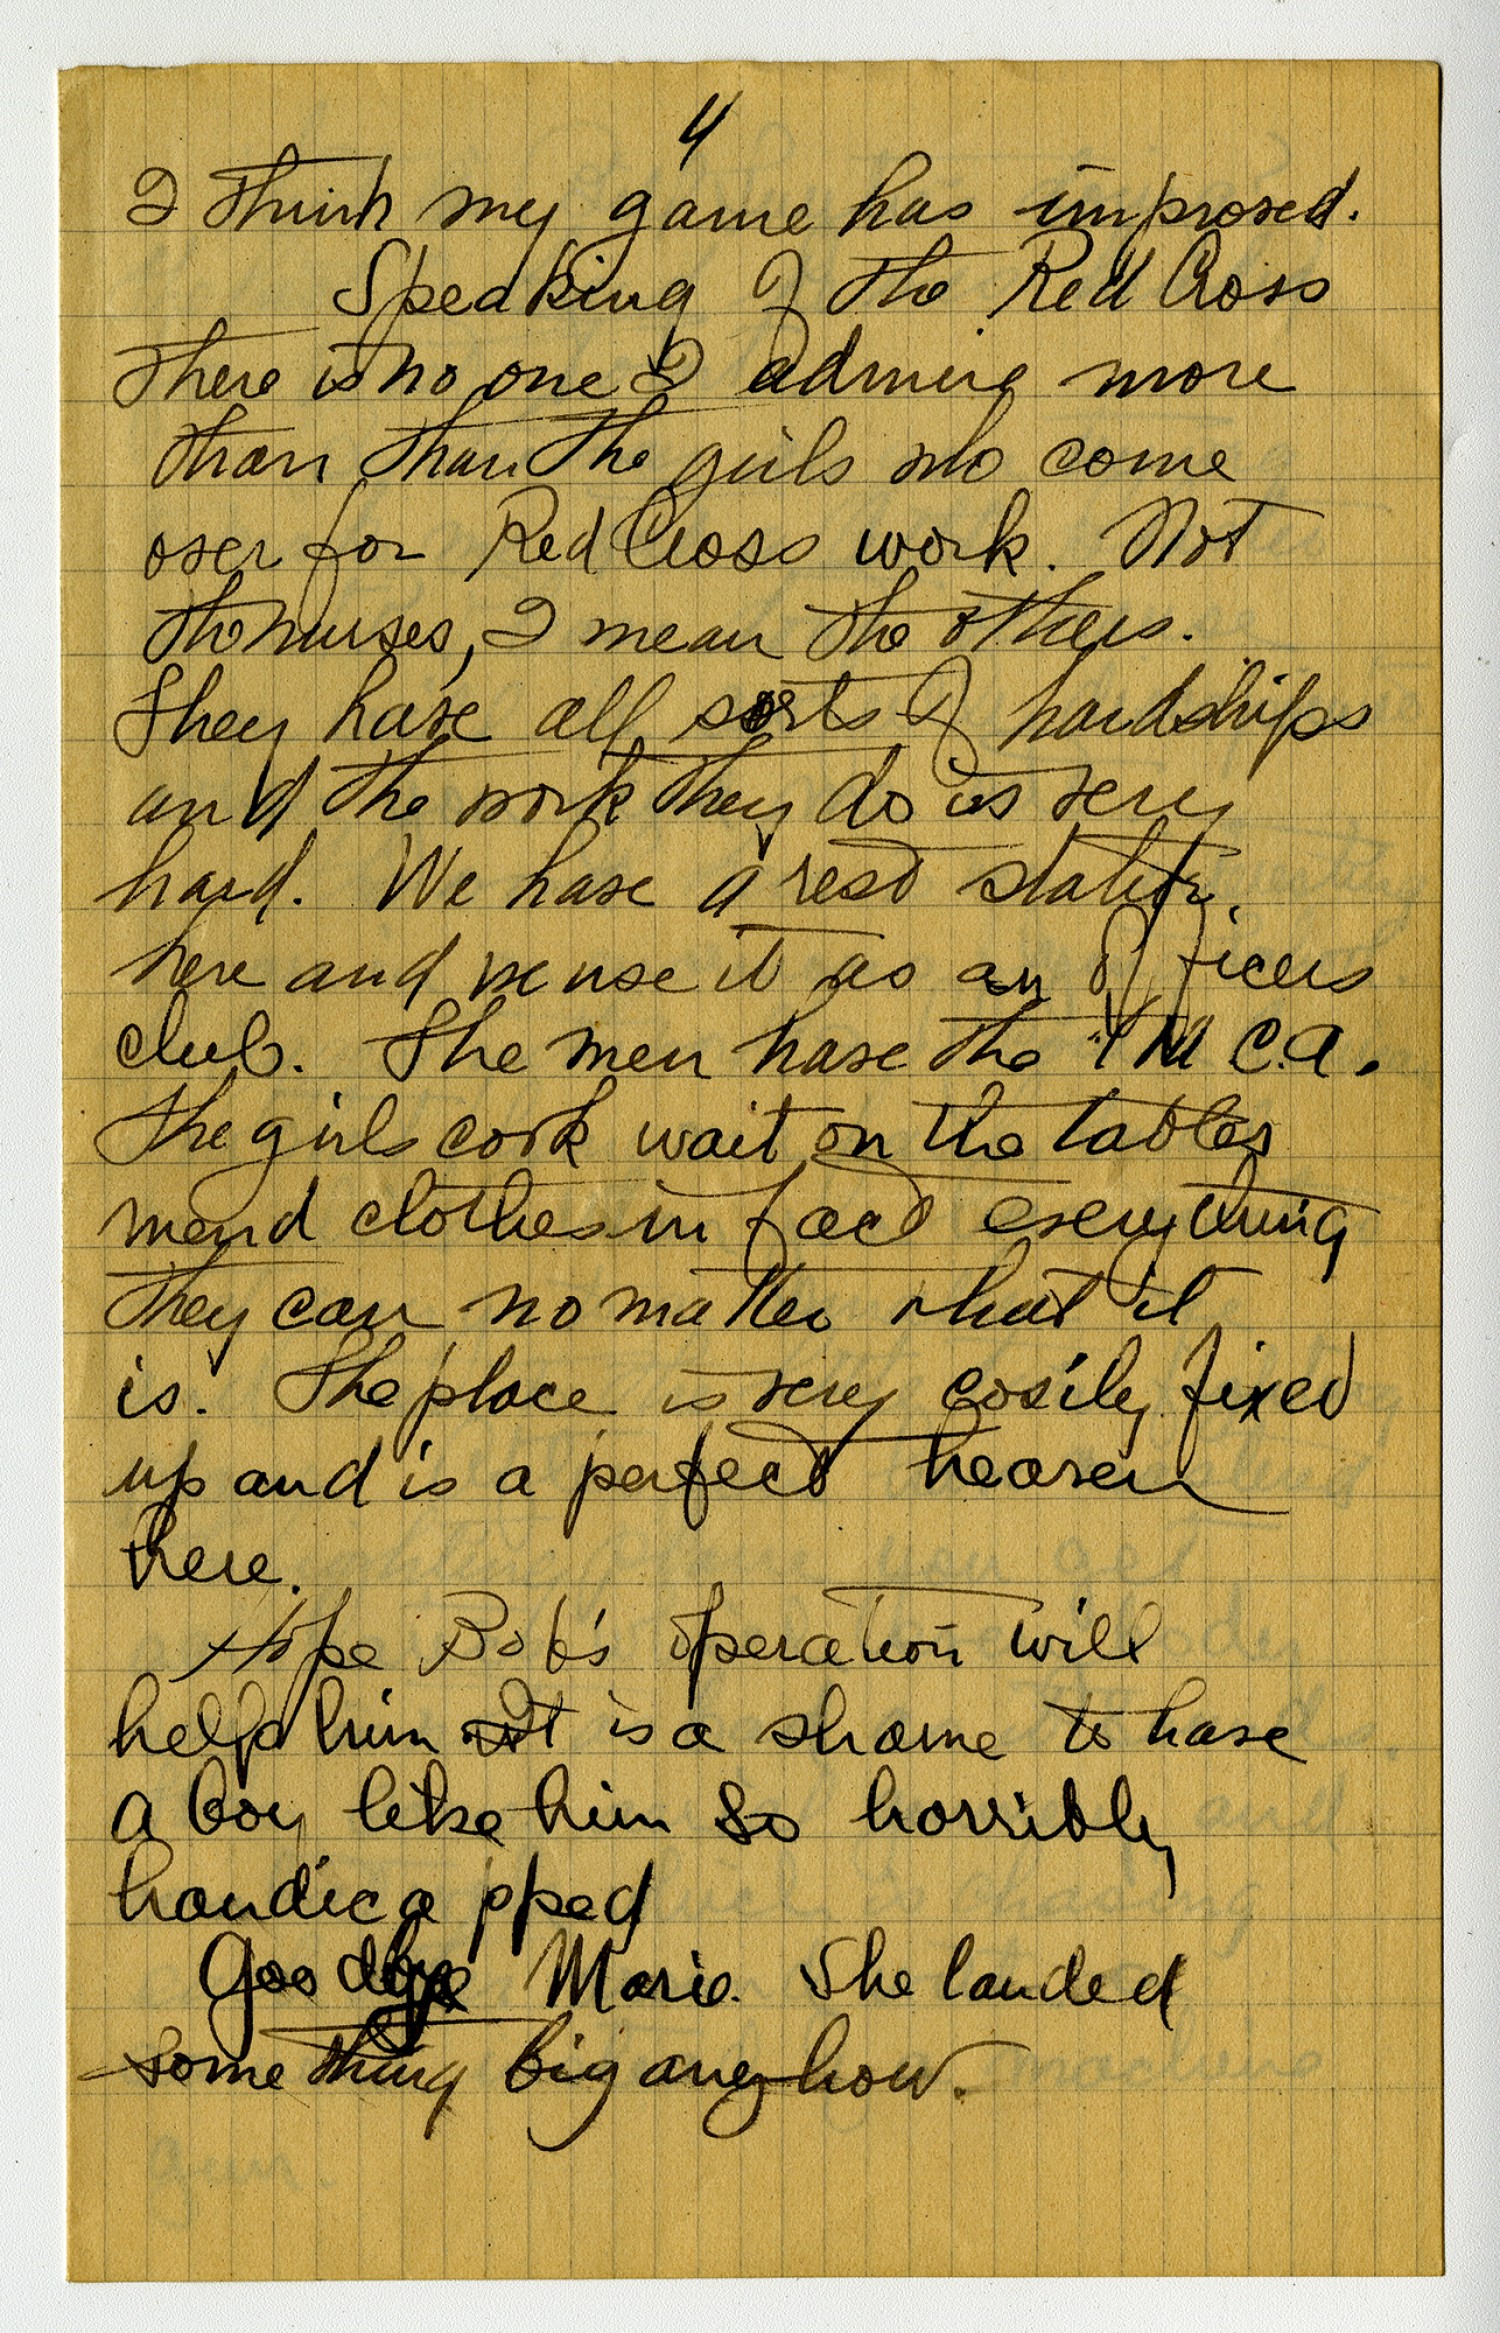 4
I think my game has improved.
Speaking of the Red Cross
there is no one I admire more
than than the girls who come
over for Red Cross work. Not
the nurses, I mean the others.
They have all sorts of hardships
and the work they do is very
hard. We have a rest station
here and we use it as an officers
club. The men have the YMC.A.
The girls cook wait on the tables
mend clothes in fact everything
they can no matter what it
is. The place is very cosily fixed
up and is a perfect heaven
here.
Hope Bob's operation will
help him It is a shame to have
a boy like him so horribly
handicapped
Goodbye Marie. She landed
something big anyhow.